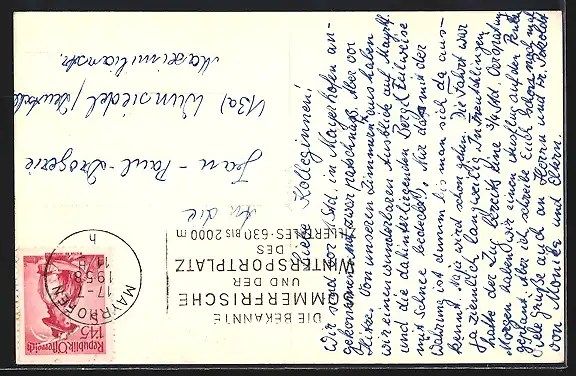 Liebe Kolleginnen!
Wir sind vor 1 Std. in Mayerhofen an-
gekommen, zwar patschnaß. Aber vor
Hitze. Von unseren Zimmern aus haben
wir einen wunderbaren Ausblick auf Mayrh.
und die dahinterliegenden Berge (teilweise
mit Schnee bedeckt). Nur das mit der
Währung ist dumm bis man sich da aus-
kennt. Naja wird schon gehn. Die Fahrt war
ja ziemlich langweilig. In Treuchtlingen
hatte der Zug bereits eine 3/4 Std. Verspätung
Morgen haben wir einen Ausflug auf den Penken
geplant. Aber ich schreibe Euch schon noch mal
Viele Grüße auch an Herrn und Fr. Sokoldt
von Monika und Eltern.
An die
Jean-Paul-Drogerie
(13a) Wunsiedel /
Maximilianstr.
DIE BEKANNTE
SOMMERFRISCHE
UND DER
WINTERSPORTPLATZ
DES
ZILLERTALES-630 BIS 2000 m
MAYRHOFEN
17.-
1958
h
145
Republik Österreich